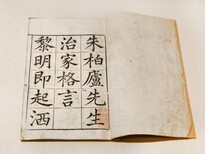 朱柏廬先生
治家格言
黎明即起洒